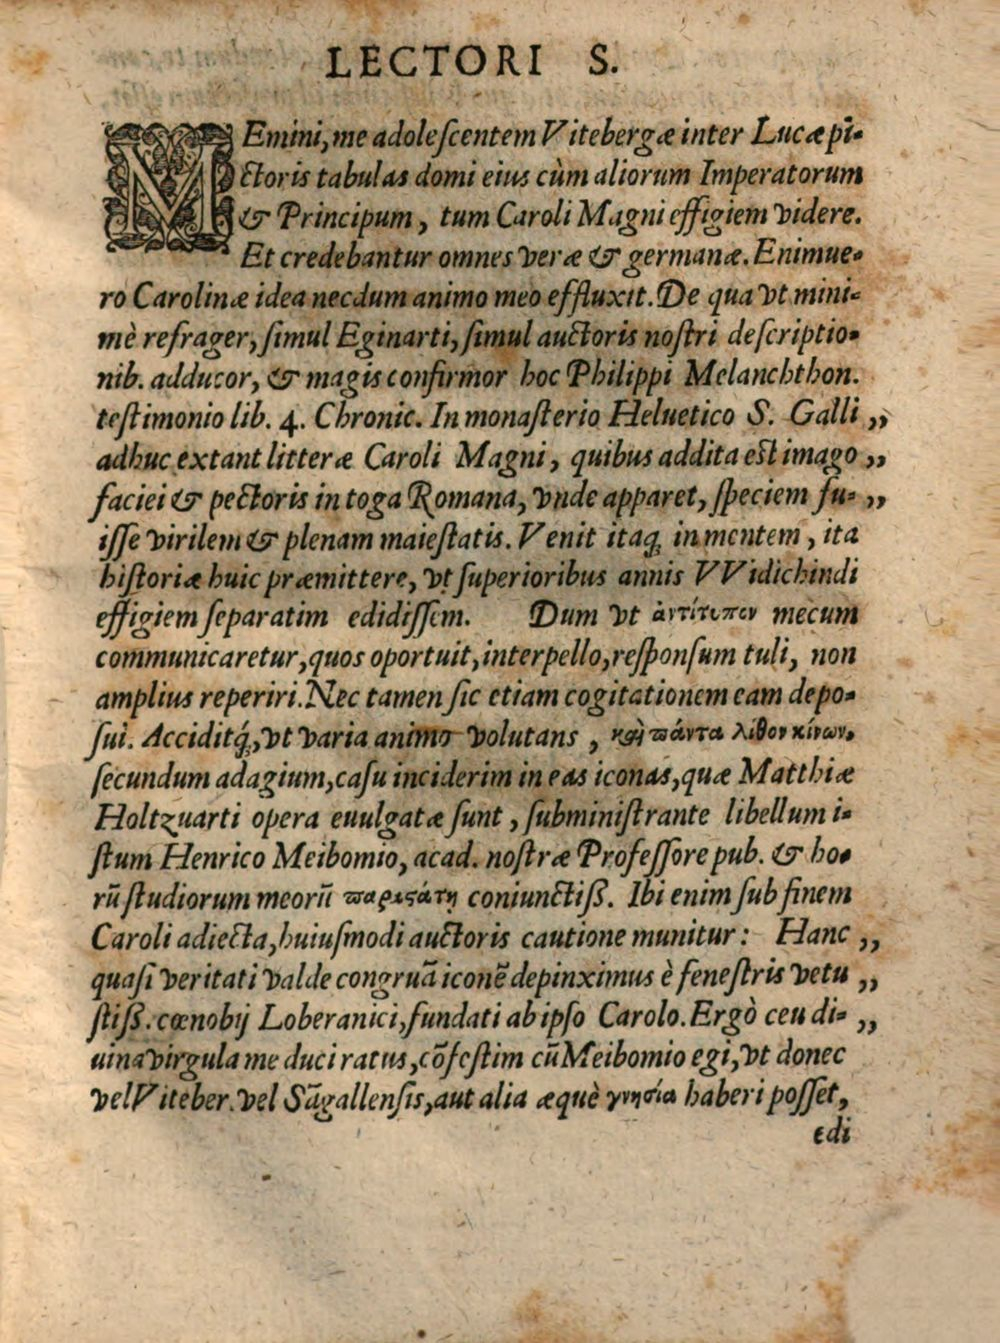 LECTORI S.
MEmini, me adoleſcentem Vitebergæ inter Lucæ pi-
ctoris tabulas domi eius cùm aliorum Imperatorum
& Principum, tum Caroli Magni effigiem videre.
Et credebantur omnes veræ & germanæ. Enimue-
ro Carolinæ idea necdum animo meo effluxit. De qua vt mini-
mè refrager, ſimul Eginarti, ſimul auctoris noſtri deſcriptio-
nib. adducor, & magis confirmor hoc Philippi Melanchthon.
teſtimonio lib. 4. Chronic. In monaſterio Heluetico S. Galli „
adhuc extant litteræ Caroli Magni, quibus addita eſt imago „
faciei & pectoris in toga Romana, vnde apparet, ſpeciem fu- „
iſſe virilem & plenam maieſtatis. Venit itaq; in mentem, ita
hiſtoriæ huic præmittere, vt ſuperioribus annis VVidichindi
effigiem ſeparatim edidiſſem. Dum vt ἀντίτυπον mecum
communicaretur, quos oportuit, interpello, reſponſum tuli, non
amplius reperiri. Nec tamen ſic etiam cogitationem eam depo-
ſui. Acciditq́;, vt varia animo volutans, καὶ πάντα λίθον κίνων,
ſecundum adagium, caſu inciderim in eas iconas, quæ Matthiæ
Holtzuarti opera euulgatæ ſunt, ſubminiſtrante libellum i-
ſtum Henrico Meibomio, acad. noſtræ Profeſſore pub. & ho-
rū ſtudiorum meorū παραςάτῃ coniunctiſſ. Ibi enim ſub finem
Caroli adiecta, huiuſmodi auctoris cautione munitur: Hanc „
quaſi veritati valde congruā iconē depinximus è feneſtris vetu „
ſtiſſ. cœnobij Loberanici, fundati ab ipſo Carolo. Ergò ceu di- „
uina virgula me duci ratus, cōfeſtim cū Meibomio egi, vt donec
vel Viteber. vel Sāgallenſis, aut alia æquè γνησία haberi poſſet,
edi